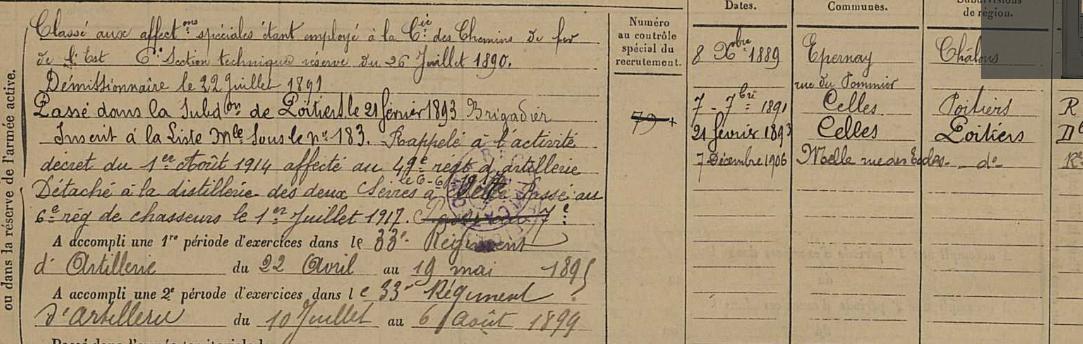 ou dans la réserve de l'armée active.
Classé aux affect<sup>ons</sup> spéciales étant employé à la C<sup>ie</sup> des Chemins de fer
de l'Est 6<sup>e</sup> Section technique réserve du 26 Juillet 1890.
Démissionnaire le 22 Juillet 1891
Passé dans la Subd<sup>on</sup> de Poitiers le 21 février 1893 Brigadier
Inscrit à la Liste M<sup>le</sup> sous le n° 183. Rappelé à l'activité
décret du 1<sup>er</sup> Août 1914 affecté au 49<sup>e</sup> reg<sup>t</sup> d'artillerie
Détaché à la distillerie des deux Sèvres à Melle Passé au
6<sup>e</sup> rég de chasseurs le 1<sup>er</sup> Juillet 1917.
A accompli une 1<sup>re</sup> période d'exercices dans le 33<sup>e</sup> Régiment
d'Artillerie du 22 Avril au 19 mai 1895
A accompli une 2<sup>e</sup> période d'exercices dans le 33<sup>e</sup> Régiment
d'Artillerie du 10 Juillet au 6 Août 1899
Numéro
au contrôle
spécial du
recrutement.
79
Dates. Communes. Subdivisions
de région.
8 X<sup>bre</sup> 1889 Epernay Châlons
rue du Pommier
7 - 7<sup>bre</sup> 1891 Celles Poitiers R
21 février 1893 Celles Poitiers D
7 Décembre 1906 Melle rue des Ecoles d° R